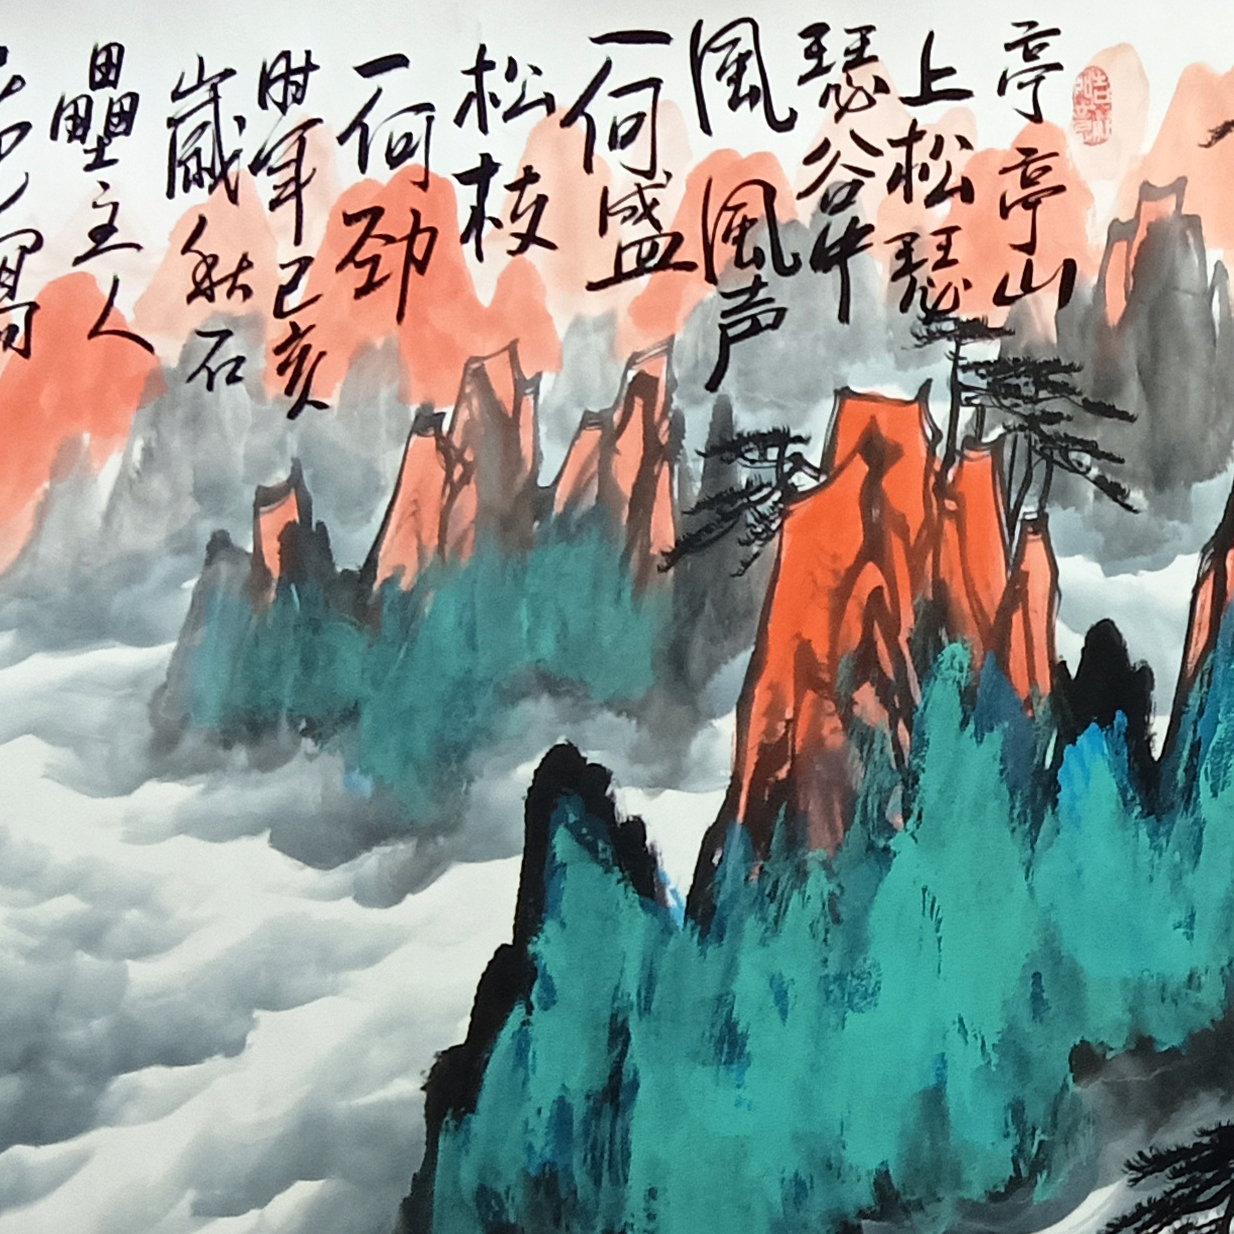 亭亭山
上松瑟
瑟谷中
風風声
一何盛
松枝
一何劲
时年己亥
歲秋石
壘主人
寫